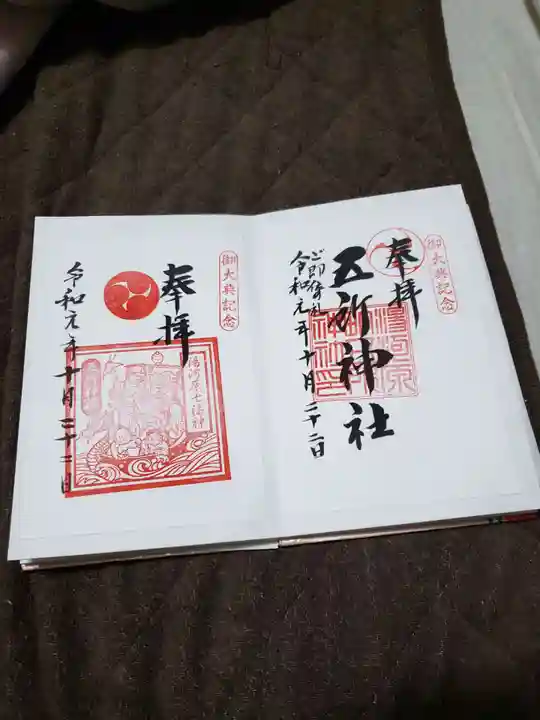 御大典記念
奉拝
五所神社
湯河原
ご即位礼
令和元年十月二十二日
御大典記念
奉拝
湯河原七福神
令和元年十月二十二日